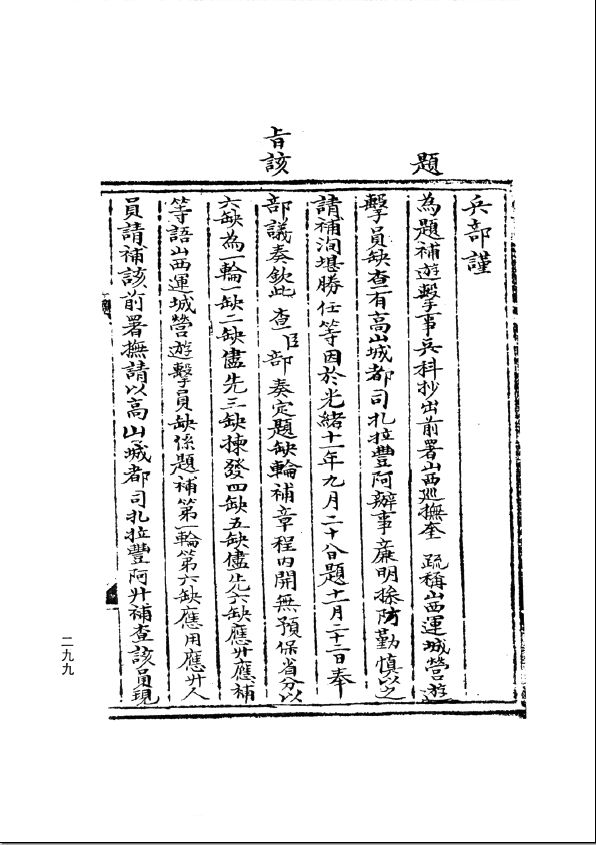 兵部謹
題為題補遊擊事兵科抄出前署山西巡撫奎 疏稱山西運城營遊
擊員缺查有高山城都司扎拉豐阿辦事廉明操防勤慎以之
請補洵堪勝任等因於光緒十一年九月二十八日題十一月二十二日奉
旨該部議奏欽此查臣部奏定題缺輪補章程内開無預保省分以
六缺為一輪一缺二缺儘先三缺揀發四缺五缺儘先六缺應升應補
等語山西運城營遊擊員缺係題補第一輪第六缺應用應升人
員請補該前署撫請以高山城都司扎拉豐阿升補查該員現
二九九